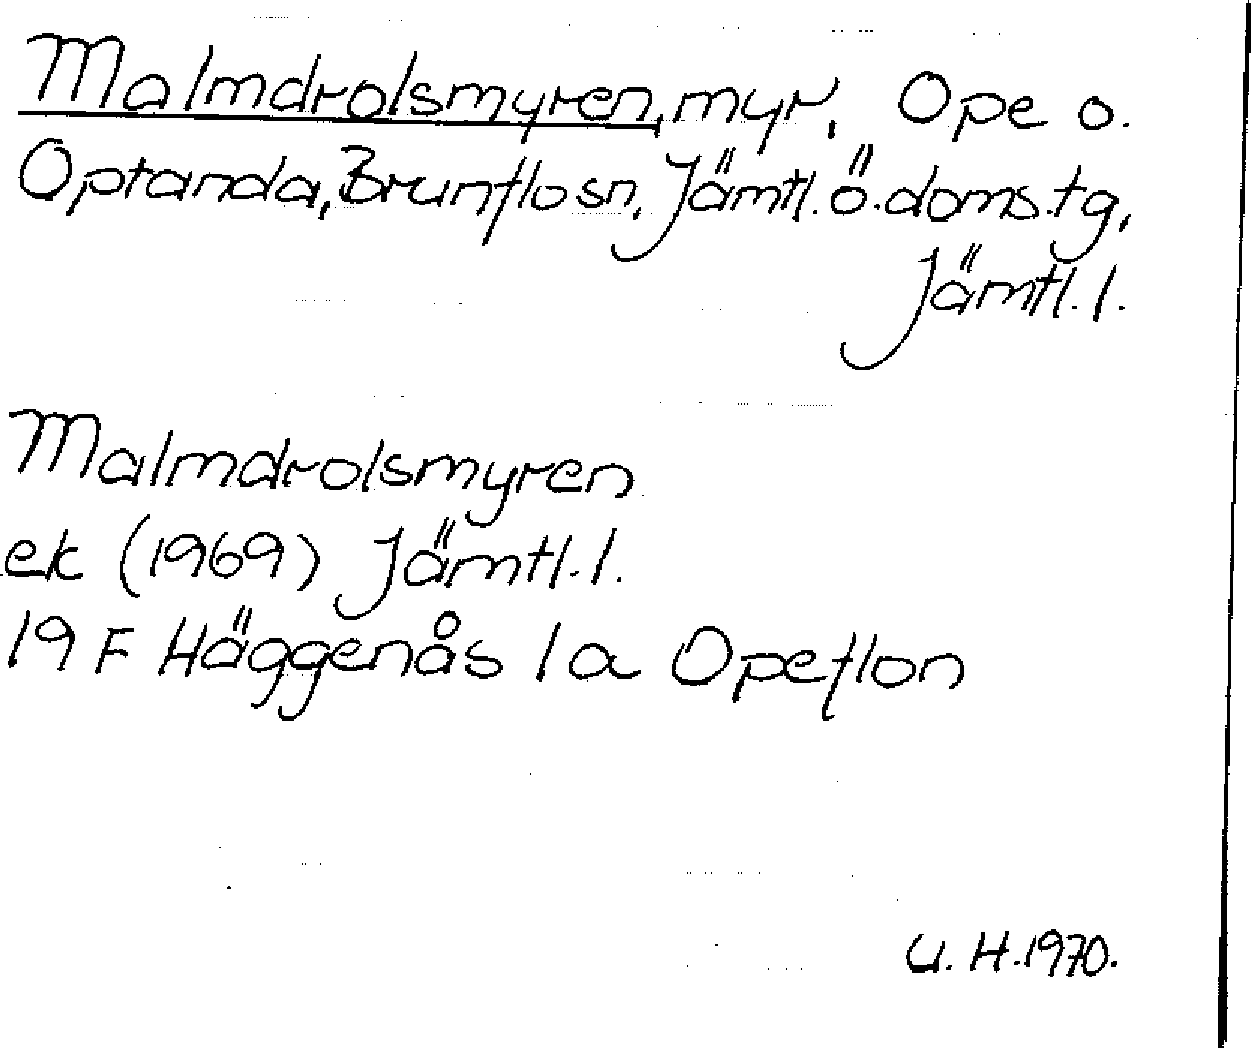 Malmdrolsmyren, myr, Ope o.
Optanda, Brunflo sn, Jämtl. ö. doms.tg,
Jämtl. l.
Malmdrolsmyren
ek (1969) Jämtl. l.
19 F Häggenås 1 a Opeflon
U. H. 1970.